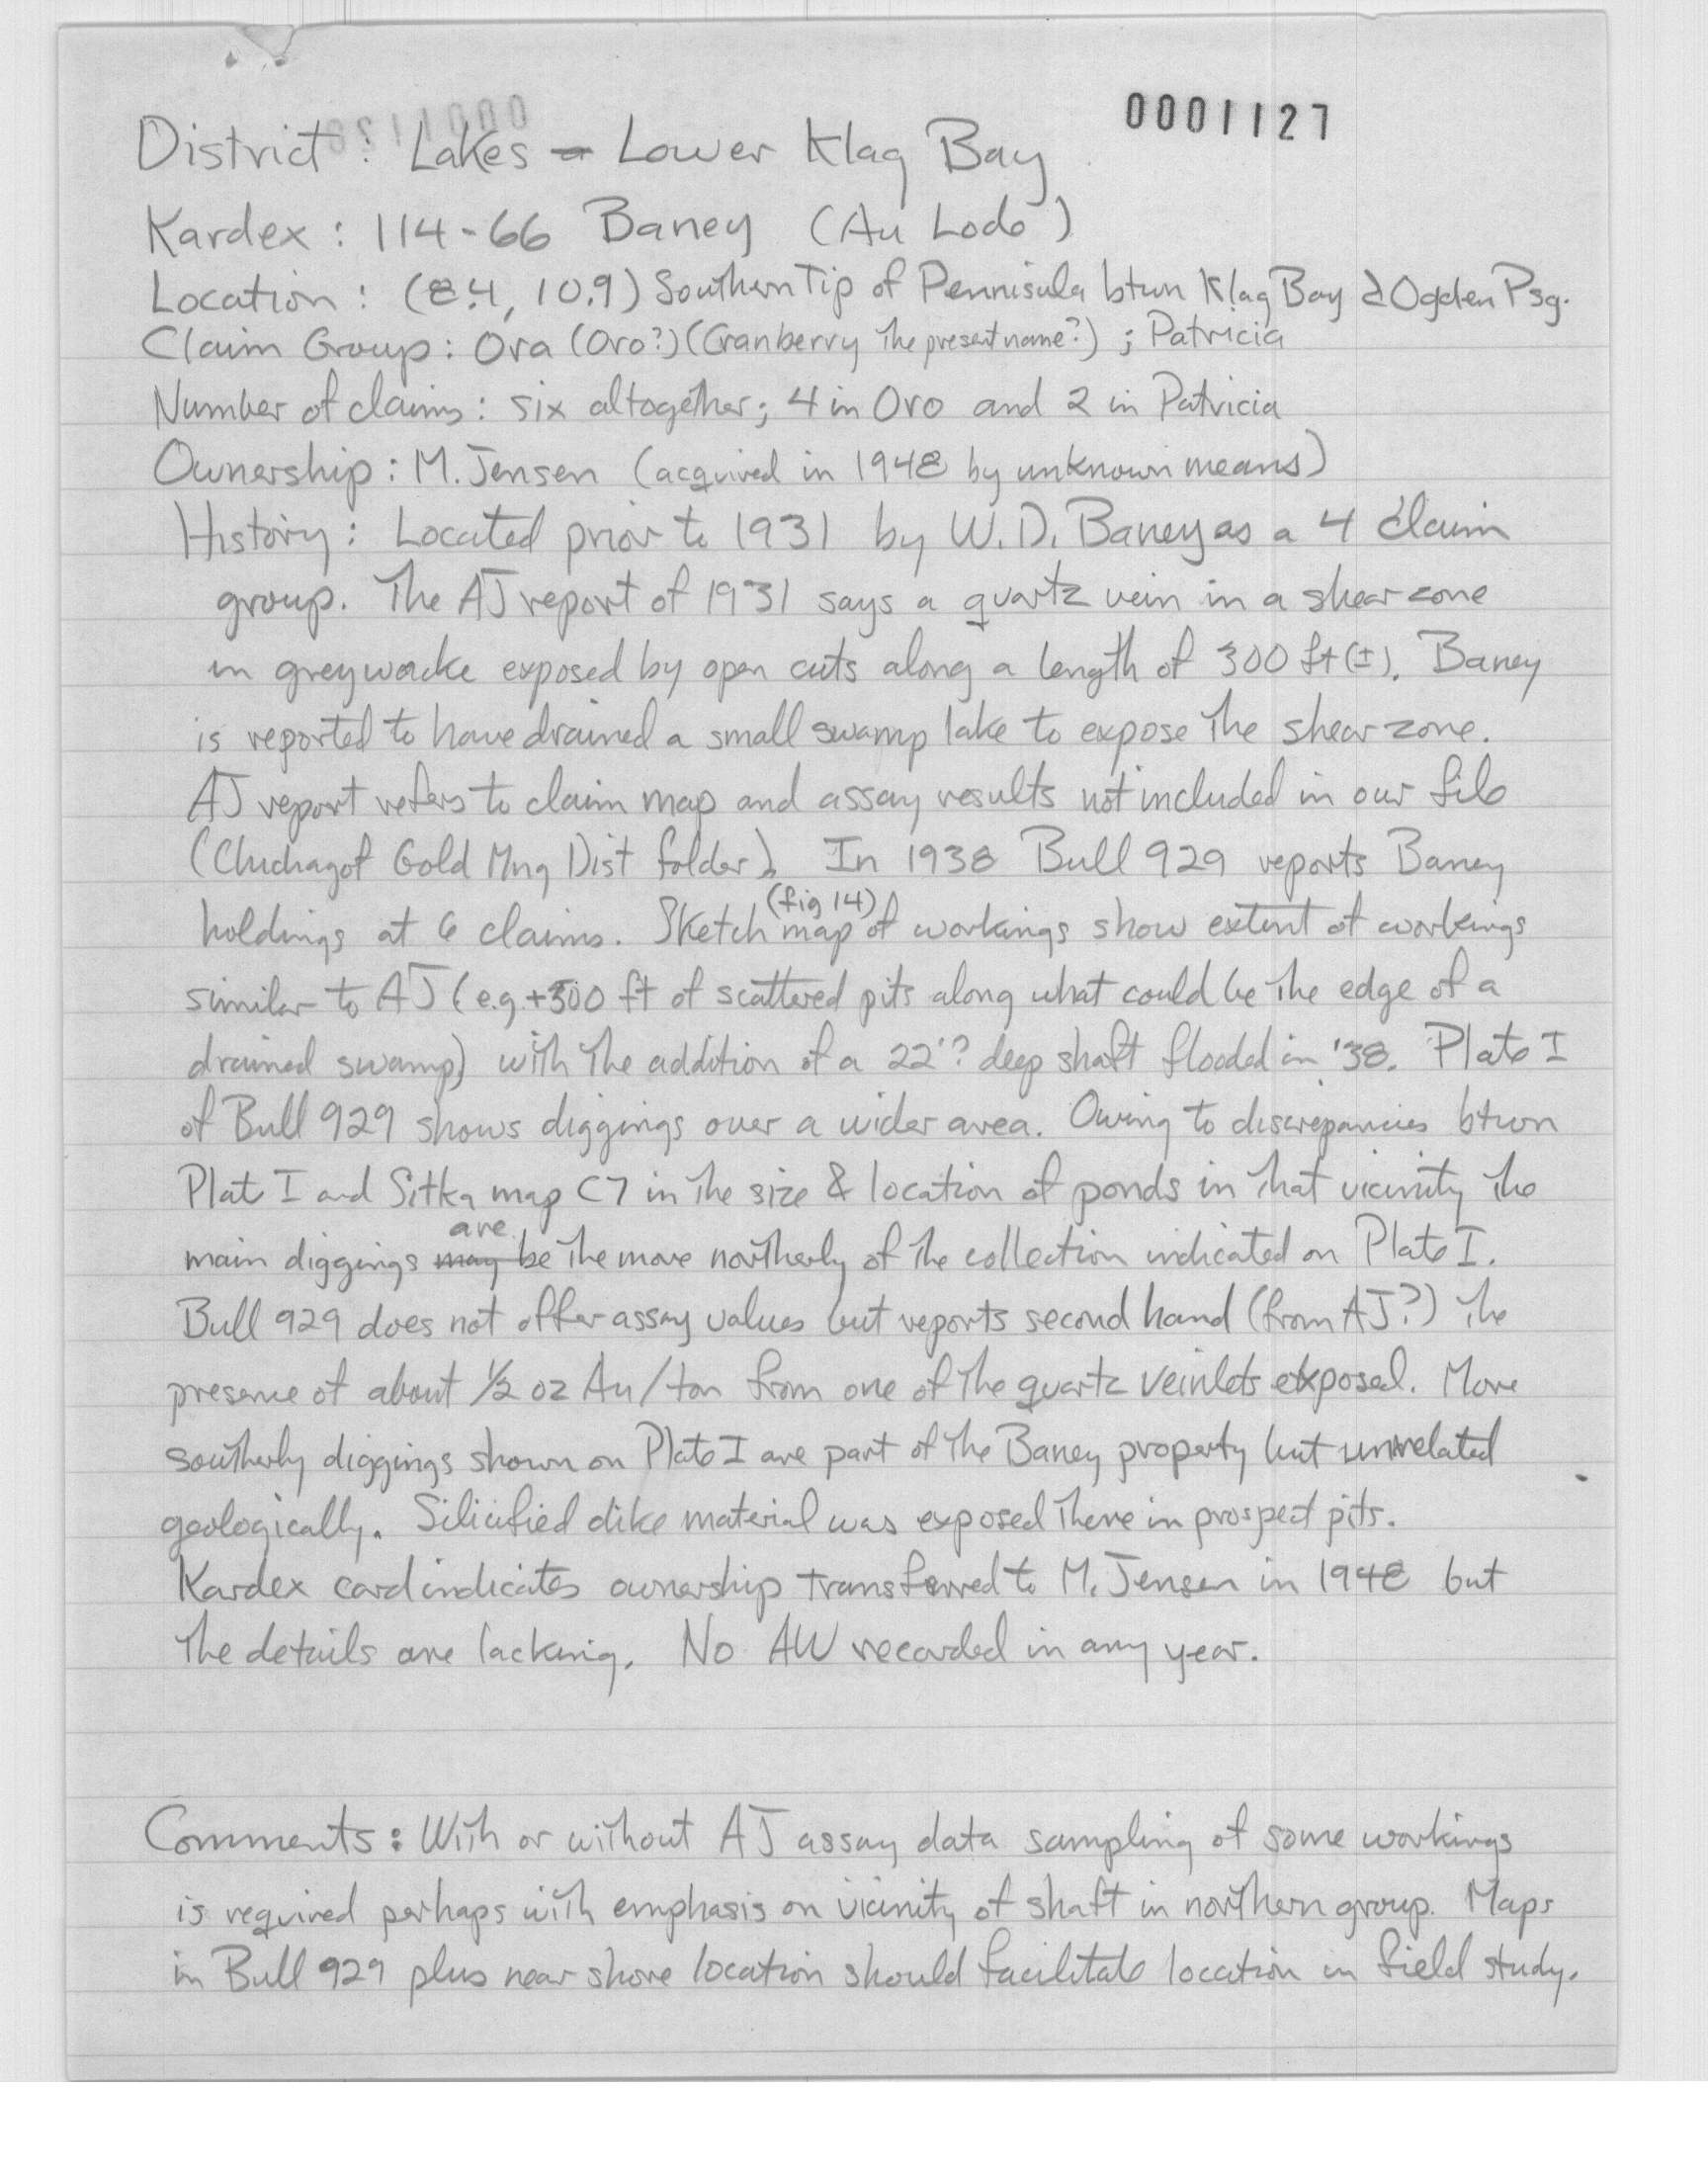 0001127
District : Lakes - Lower Klag Bay
Kardex : 114-66 Baney (Au Lode)
Location : (8.4, 10.9) Southern Tip of Pennisula btwn Klag Bay & Ogden Psg.
Claim Group : Ora (Oro?) (Cranberry the present name?) ; Patricia
Number of claims : six altogether; 4 in Oro and 2 in Patricia
Ownership : M. Jensen (acquired in 1948 by unknown means)
History : Located prior to 1931 by W.D. Baney as a 4 claim
group. The AJ report of 1931 says a quartz vein in a shear zone
in greywacke exposed by open cuts along a length of 300 ft (±). Baney
is reported to have drained a small swamp lake to expose the shear zone.
AJ report refers to claim map and assay results not included in our file
(Chichagof Gold Mng Dist folder). In 1938 Bull 929 reports Baney
holdings at 6 claims. Sketch map (fig 14) of workings show extent of workings
similar to AJ (e.g. +300 ft of scattered pits along what could be the edge of a
drained swamp) with the addition of a 22'? deep shaft flooded in '38. Plate I
of Bull 929 shows diggings over a wider area. Owing to discrepancies btwn
Plate I and Sitka map C7 in the size & location of ponds in that vicinity the
main diggings may are be the more northerly of the collection indicated on Plate I.
Bull 929 does not offer assay values but reports second hand (from AJ?) the
presence of about 1/2 oz Au/ton from one of the quartz veinlets exposed. More
southerly diggings shown on Plate I are part of the Baney property but unrelated
geologically. Silicified dike material was exposed there in prospect pits.
Kardex card indicates ownership transferred to M. Jensen in 1948 but
the details are lacking. No AW recorded in any year.
Comments : With or without AJ assay data sampling of some workings
is required perhaps with emphasis on vicinity of shaft in northern group. Maps
in Bull 929 plus near shore location should facilitate location in field study.